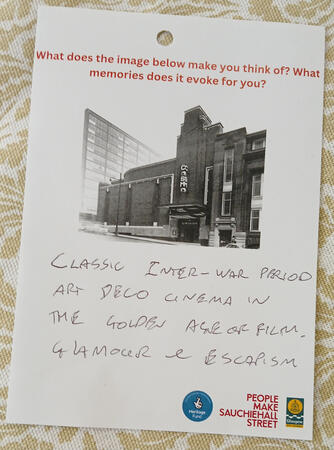 What does the image below make you think of? What
memories does it evoke for you?
CLASSIC INTER-WAR PERIOD
ART DECO CINEMA IN
THE GOLDEN AGE OF FILM.
GLAMOUR & ESCAPISM
Heritage
Fund
PEOPLE
MAKE
SAUCHIEHALL
STREET
Glasgow